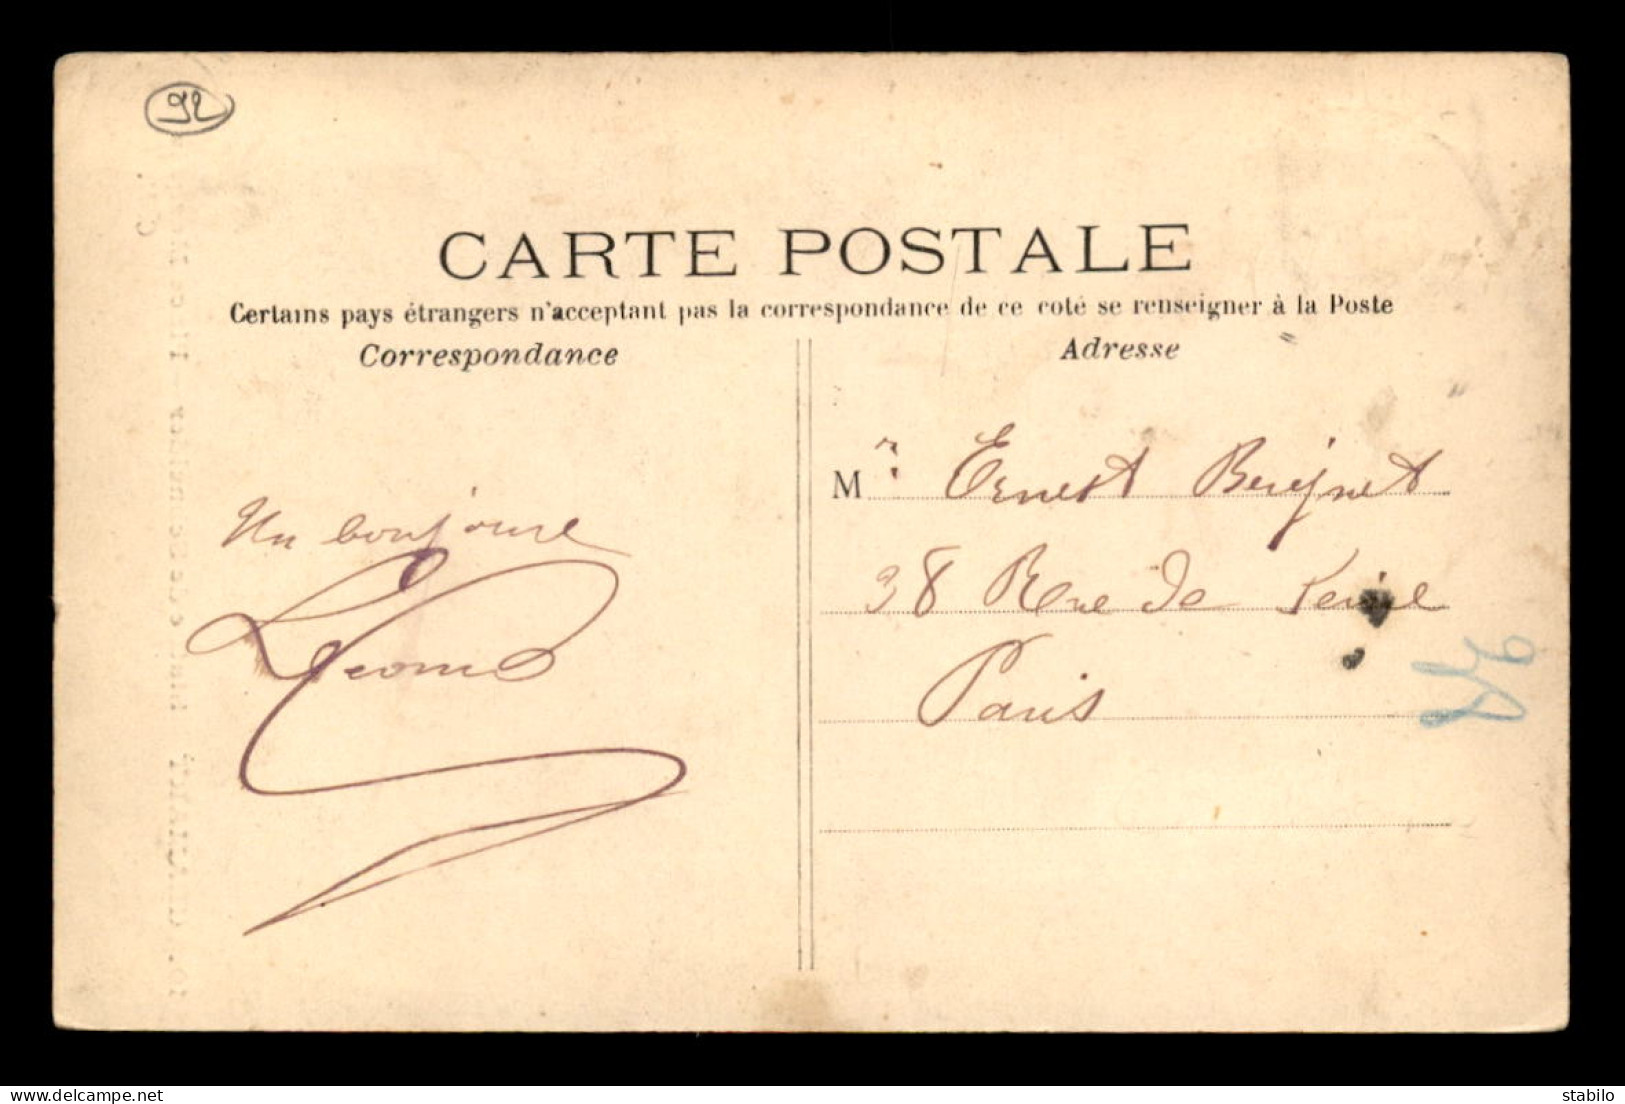 92
CARTE POSTALE
Certains pays étrangers n'acceptant pas la correspondance de ce coté se renseigner à la Poste
Correspondance
Adresse
Un bonjour
M r Ernest
38 Rue de Seine
Paris
www.delcampe.net
stabilo